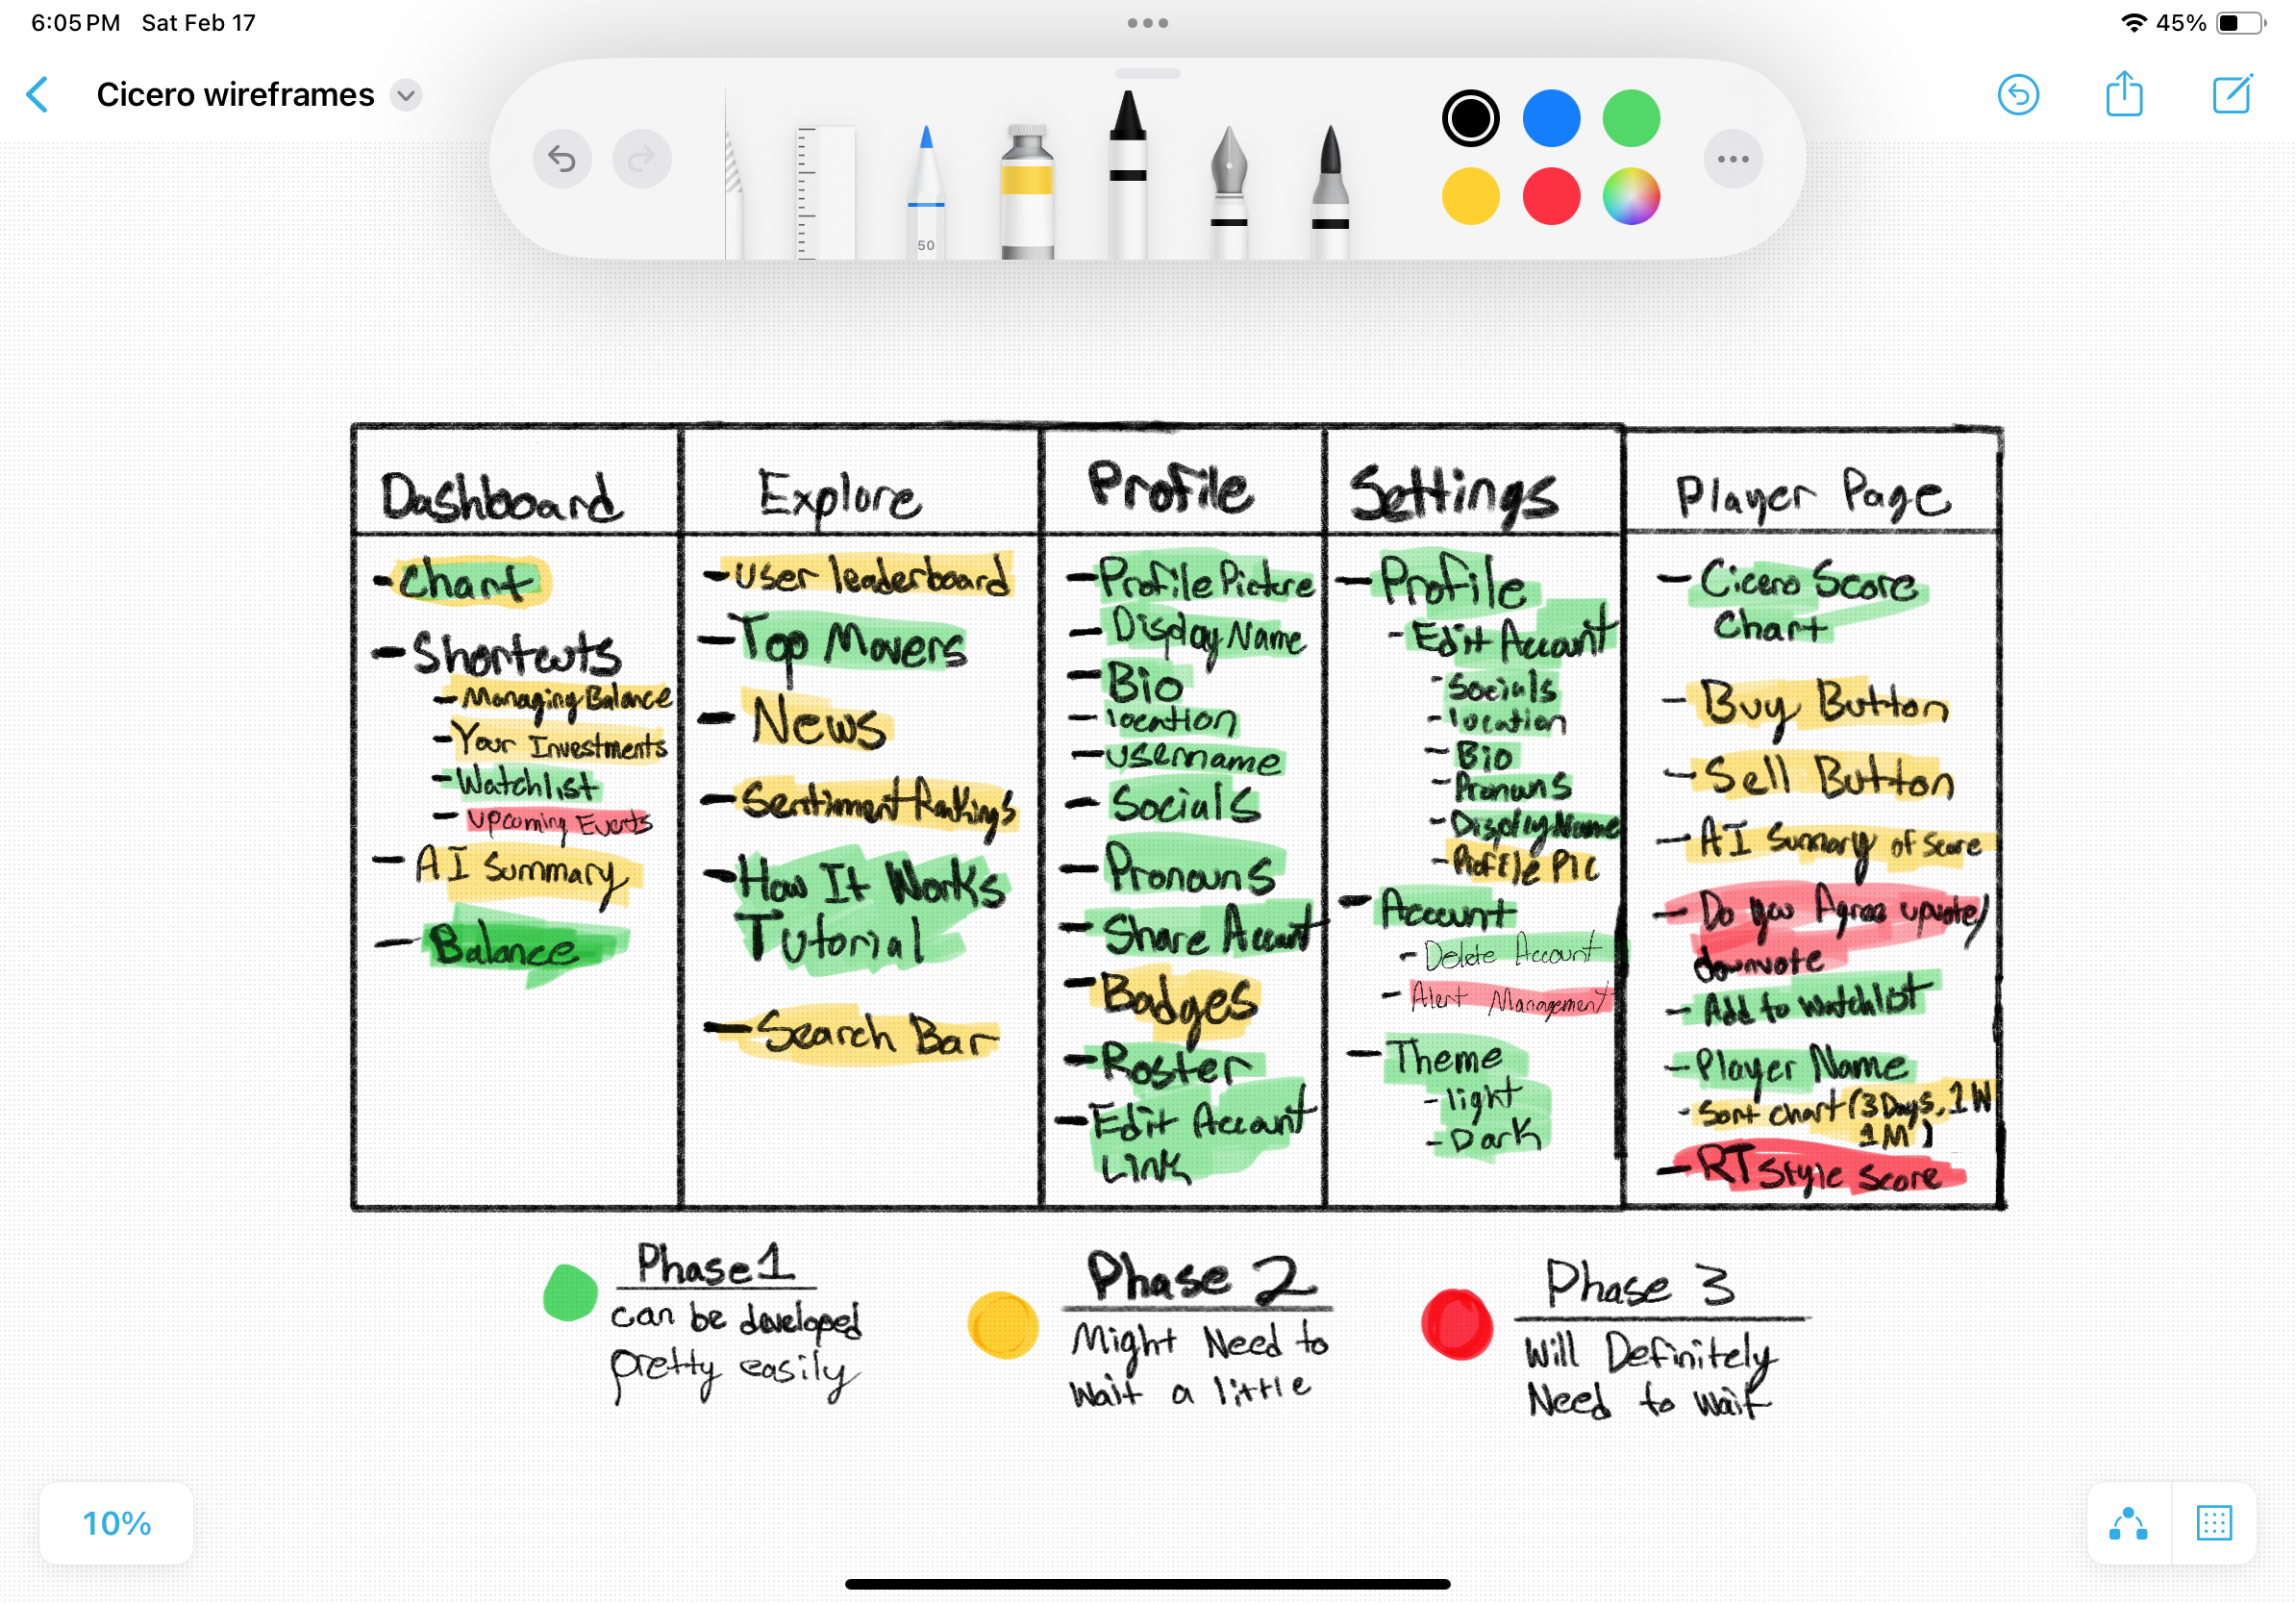 6:05 PM Sat Feb 17
45%
Cicero wireframes
50
Dashboard
- Chart
- Shortcuts
- Managing Balance
- Your Investments
- Watchlist
- Upcoming Events
- AI Summary
- Balance
Explore
- User leaderboard
- Top Movers
- News
- Sentiment Rankings
- How It Works
Tutorial
- Search Bar
Profile
- Profile Picture
- Display Name
- Bio
- location
- username
- Socials
- Pronouns
- Share Account
- Badges
- Roster
- Edit Account
Link
Settings
- Profile
- Edit Account
- Socials
- location
- Bio
- Pronouns
- Display Name
- Profile Pic
- Account
- Delete Account
- Alert Management
- Theme
- light
- Dark
Player Page
- Cicero Score
Chart
- Buy Button
- Sell Button
- AI Summary of Score
- Do you Agree upvote/
downvote
- Add to Watchlist
- Player Name
- Sort chart (3 Days, 1W
1M)
- RT Style Score
Phase 1
can be developed
pretty easily
Phase 2
Might Need to
wait a little
Phase 3
Will Definitely
Need to wait
10%